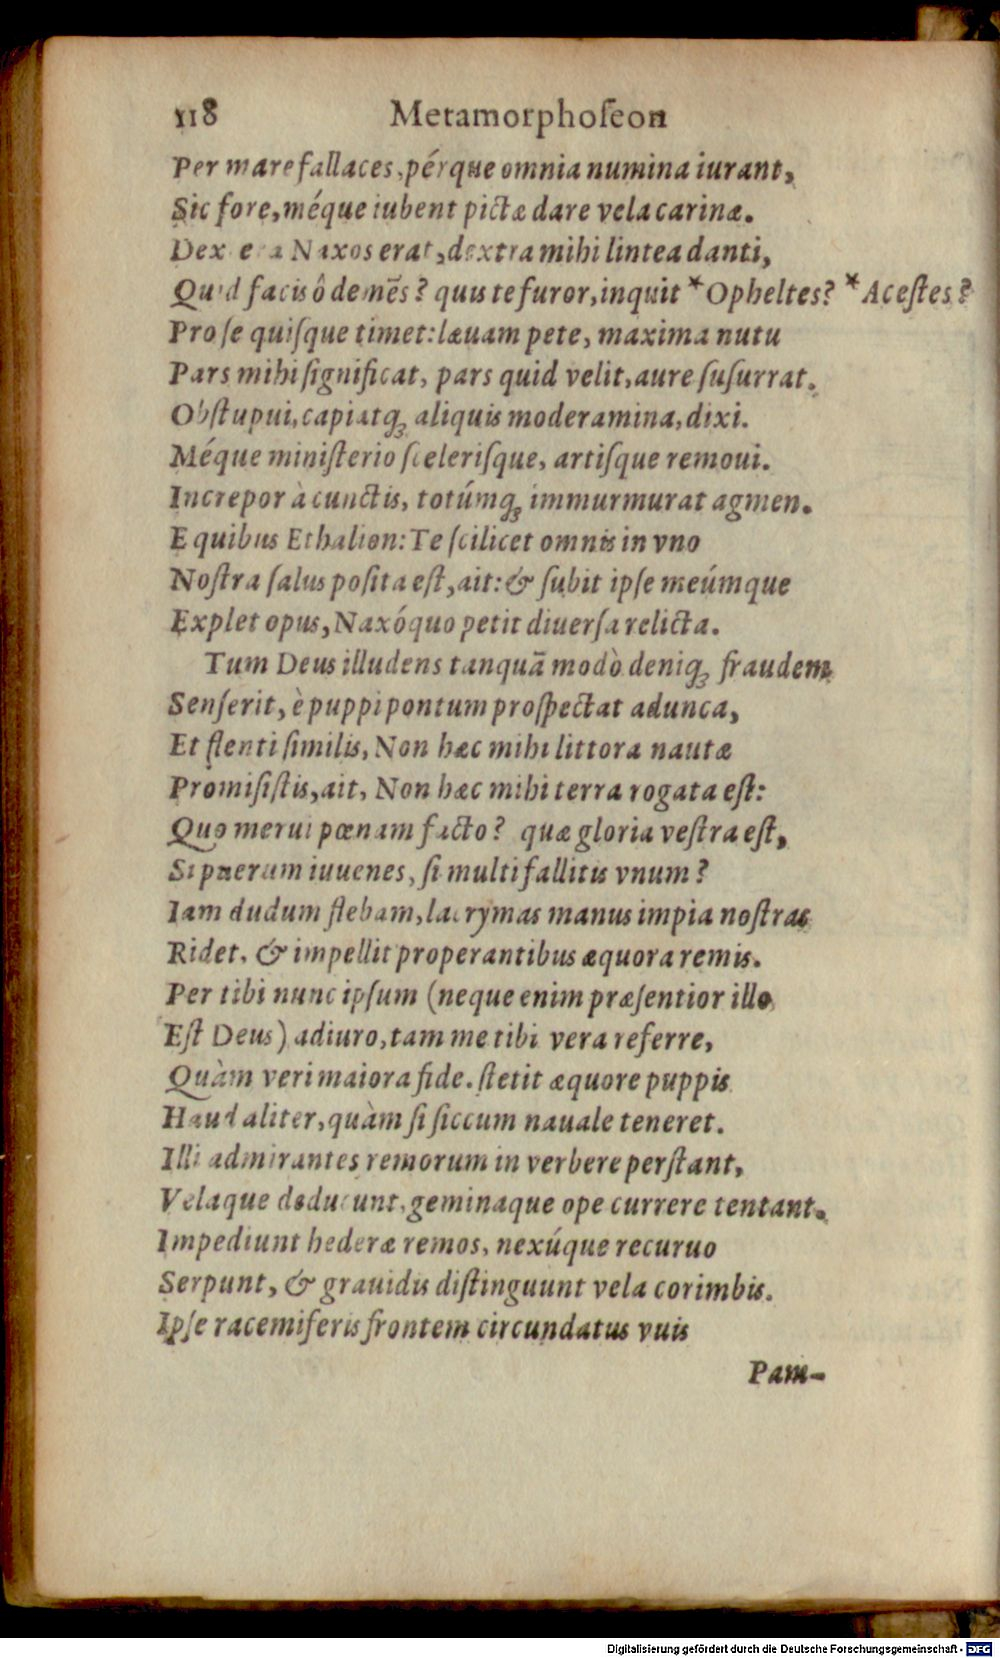 118 Metamorphoſeon
Per mare fallaces, pérque omnia numina iurant,
Sic fore, méque iubent pictæ dare vela carinæ.
Dextera Naxos erat, dextra mihi lintea danti,
Quid facis ô demēs? quis te furor, inquit *Opheltes? *Aceſtes?
Pro ſe quiſque timet: læuam pete, maxima nutu
Pars mihi ſignificat, pars quid velit, aure ſuſurrat.
Obſtupui, capiatqꝫ aliquis moderamina, dixi.
Méque miniſterio ſceleriſque, artiſque remoui.
Increpor à cunctis, totúmqꝫ immurmurat agmen.
E quibus Ethalion: Te ſcilicet omnis in vno
Noſtra ſalus poſita eſt, ait: & ſubit ipſe meúmque
Explet opus, Naxóquo petit diuerſa relicta.
Tum Deus illudens tanquā modò deniqꝫ fraudem
Senſerit, è puppi pontum proſpectat adunca,
Et flenti ſimilis, Non hæc mihi littora nautæ
Promiſiſtis, ait, Non hæc mihi terra rogata eſt:
Quo merui pœnam facto? quæ gloria veſtra eſt,
Si puerum iuuenes, ſi multi fallitis vnum?
Iam dudum flebam, lacrymas manus impia noſtras
Ridet, & impellit properantibus æquora remis.
Per tibi nunc ipſum (neque enim præſentior illo
Eſt Deus) adiuro, tam me tibi vera referre,
Quàm veri maiora fide. ſtetit æquore puppis
Haud aliter, quàm ſi ſiccum nauale teneret.
Illi admirantes remorum in verbere perſtant,
Velaque deducunt, geminaque ope currere tentant.
Impediunt hederæ remos, nexúque recuruo
Serpunt, & grauidis diſtinguunt vela corimbis.
Ipſe racemiferis frontem circundatus vuis
Pam-
Digitalisierung gefördert durch die Deutsche Forschungsgemeinschaft - DFG